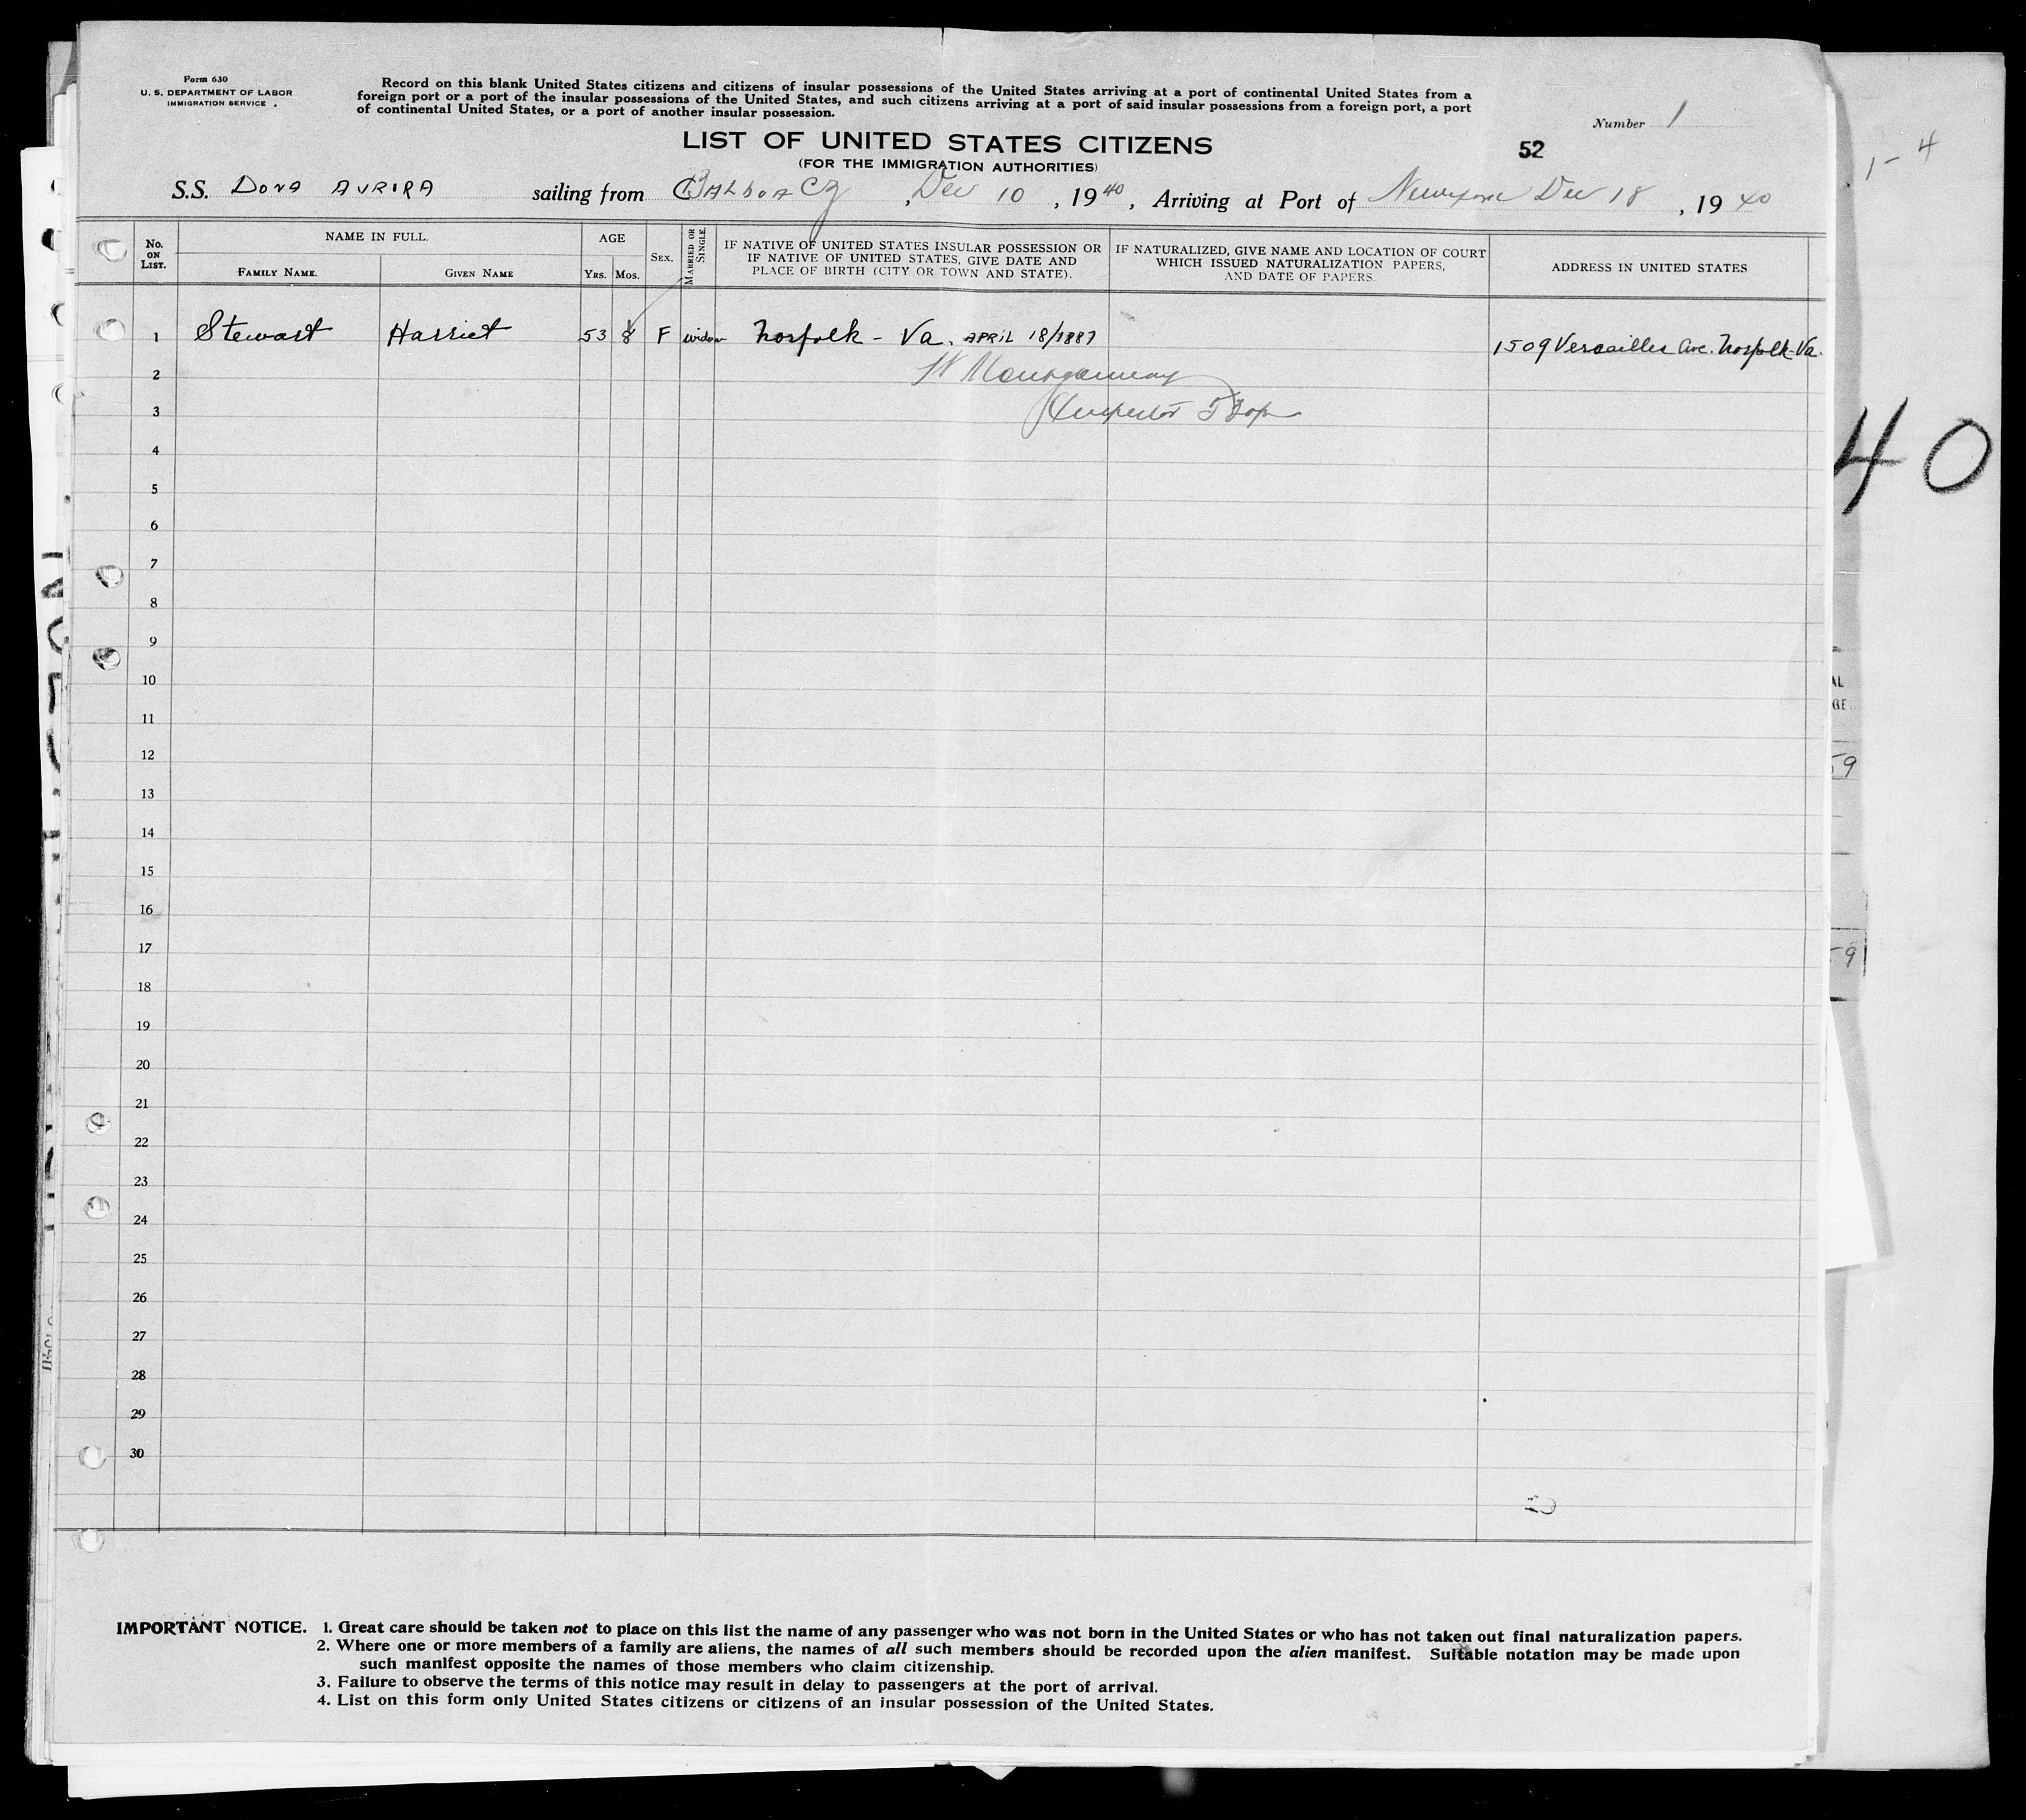 Form 630
U. S. DEPARTMENT OF LABOR
IMMIGRATION SERVICE
Record on this blank United States citizens and citizens of insular possessions of the United States arriving at a port of continental United States from a
foreign port or a port of the insular possessions of the United States, and such citizens arriving at a port of said insular possessions from a foreign port, a port
of continental United States, or a port of another insular possession.
Number 1
1 - 4
LIST OF UNITED STATES CITIZENS
52
(FOR THE IMMIGRATION AUTHORITIES)
S.S. DONA AURIRA sailing from BALBOA CZ, Dec 10, 1940, Arriving at Port of New York Dec 18, 1940
No. ON LIST.
NAME IN FULL.
FAMILY NAME.
GIVEN NAME
AGE
YRS. MOS.
SEX.
MARRIED OR SINGLE.
IF NATIVE OF UNITED STATES INSULAR POSSESSION OR
IF NATIVE OF UNITED STATES, GIVE DATE AND
PLACE OF BIRTH (CITY OR TOWN AND STATE).
IF NATURALIZED, GIVE NAME AND LOCATION OF COURT
WHICH ISSUED NATURALIZATION PAPERS,
AND DATE OF PAPERS.
ADDRESS IN UNITED STATES
1 Stewart Harriet 53 8 F widow Norfolk - Va. APRIL 18/1887 1509 Versailles Ave. Norfolk-Va.
2 Montgomery
3 Inspector
40
4
5
6
7
8
9
10
11
12
13
14
15
16
17
18
19
20
21
22
23
24
25
26
27
28
29
30
IMPORTANT NOTICE. 1. Great care should be taken not to place on this list the name of any passenger who was not born in the United States or who has not taken out final naturalization papers.
2. Where one or more members of a family are aliens, the names of all such members should be recorded upon the alien manifest. Suitable notation may be made upon
such manifest opposite the names of those members who claim citizenship.
3. Failure to observe the terms of this notice may result in delay to passengers at the port of arrival.
4. List on this form only United States citizens or citizens of an insular possession of the United States.